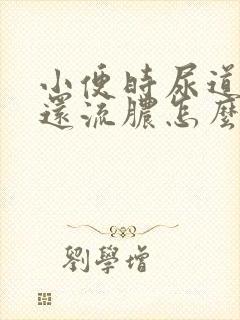 小便時尿道
還流膿怎麼
劉學增